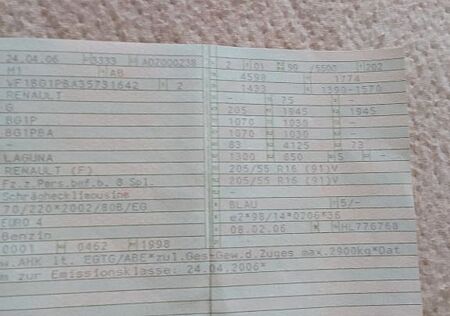 24.04.06 3333 AD7000238
M1 AB
VF1BG1PBA35731642 2
RENAULT
G
BG1P
BG1PBA
–
LAGUNA
RENAULT (F)
Fz.z.Pers.bef.b. 8 Spl.
Schräghecklimousine
70/220*2002/80B/EG
EURO 4
Benzin
0001 0462 1998
w.AHK lt. EGTG/ABE*zul.Ges-Gew.d.Zuges max.2900kg*Dat
m zur Emissionsklasse: 24.04.2006*
2 01 99 /5500 202
4598 1774
1433 1390-1570
– 75 –
205 1945 1945
1070 1030 –
1070 1030 –
83 4125 73
1300 650 5 –
205/55 R16 (91)V
205/55 R16 (91)V
–
BLAU 5/–
e2*98/14*0206*36
08.02.06 HL776768